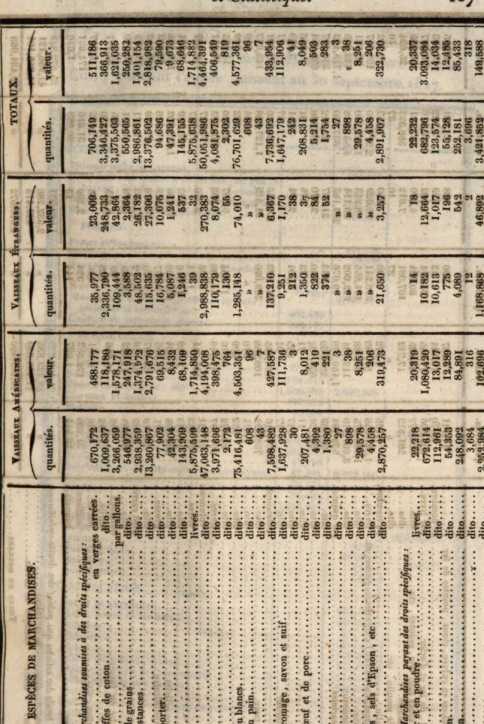 ESPÈCES DE MARCHANDISES. VAISSEAUX AMÉRICAINS. VAISSEAUX ÉTRANGERS. TOTAUX.
quantités. valeur. quantités. valeur. quantités. valeur.
rchandises soumises à des droits spécifiques :
en verges carrées. 670,172 488,177 35,977 23,009 706,149 511,186
ffes de coton. dito. 1,009,637 118,180 2,336,790 248,733 3,346,427 366,913
par gallons. 3,266,059 1,578,171 109,444 42,864 3,375,503 1,621,035
de grains dito. 546,977 247,918 3,588 2,364 550,565 250,282
stances. dito. 2,938,359 1,374,972 48,502 26,182 2,986,861 1,401,154
dito. 13,260,867 2,791,676 115,635 27,306 13,376,502 2,818,982
dito. 77,902 69,515 16,784 10,075 94,686 79,590
porter. dito. 42,304 8,432 5,087 1,241 47,391 9,673
dito. 143,909 68,109 1,246 537 145,155 68,646
livres. 5,875,599 1,714,850 39 32 5,875,638 1,714,882
dito. 47,063,148 4,194,008 2,988,838 270,383 50,051,986 4,464,391
dito. 3,971,696 398,475 110,179 8,074 4,081,875 406,549
dito. 2,172 764 130 55 2,302 819
u blancs. dito. 75,416,481 4,503,351 1,285,148 74,010 76,701,629 4,577,361
u pain. dito. 608 96 » » 608 96
dito. 43 7 » » 43 7
dito. 7,598,482 427,587 137,210 6,367 7,736,692 433,954
romage, savon et suif. dito. 1,637,928 111,736 9,251 1,170 1,647,179 112,906
dito. 30 3 212 38 242 41
œuf et de porc. dito. 207,481 8,012 1,350 37 208,831 8,049
dito. 4,392 419 822 84 5,214 503
dito. 1,380 231 374 52 1,754 283
dito. 27 3 » » 27 3
dito. 898 38 » » 898 38
dito. 29,578 8,251 » » 29,578 8,251
dito. 4,458 206 » » 4,458 206
sels d'Epson, etc. dito. 2,870,257 319,473 21,650 3,257 2,891,907 322,730
rchandises payant des droits spécifiques :
livres. 22,218 20,319 14 18 22,232 20,337
et en poudre. dito. 672,614 1,080,420 10,182 12,664 682,796 3.093,084
dito. 112,961 13,017 10,613 1,017 123,574 14,034
dito. 54,353 12,289 775 196 55,128 12,485
dito. 248,092 84,891 4,089 542 252,181 85,433
dito. 3,684 316 12 2 3,696 318
dito. 2,252,984 102,696 1,168,868 46,892 3,421,852 149,588